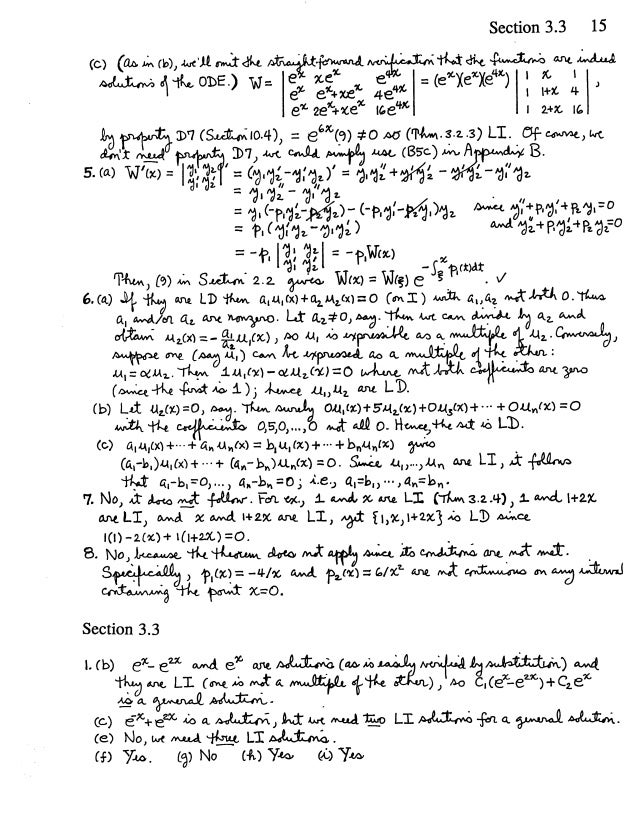 Section 3.3 15
(c) (as in (b), we'll omit the straightforward verification that the functions are indeed
solutions of the ODE.) W = | e^x xe^x e^4x | = (e^x)(e^x)(e^4x) | 1 x 1 | ,
| e^x e^x+xe^x 4e^4x | | 1 1+x 4 |
| e^x 2e^x+xe^x 16e^4x | | 1 2+x 16 |
by property D7 (Section 10.4), = e^6x (9) ≠ 0 so (Thm. 3.2.3) LI. Of course, we
don't need property D7, we could simply use (B5c) in Appendix B.
5. (a) W'(x) = | y₁ y₂ | ' = (y₁y₂' - y₁'y₂)' = y₁y₂'' + y₁'y₂' - y₁'y₂' - y₁''y₂
| y₁' y₂' |
= y₁y₂'' - y₁''y₂
= y₁(-p₁y₂' - p₂y₂) - (-p₁y₁' - p₂y₁)y₂ since y₁''+p₁y₁'+p₂y₁=0
= p₁(y₁'y₂ - y₁y₂') and y₂''+p₁y₂'+p₂y₂=0
= -p₁ | y₁ y₂ | = -p₁W(x)
| y₁' y₂' |
Then, (9) in Section 2.2 gives W(x) = W(ξ) e^{-∫_ξ^x p₁(t)dt} . ✓
6. (a) If they are LD then a₁u₁(x)+a₂u₂(x)=0 (on I) with a₁,a₂ not both 0. Thus
a₁ and/or a₂ are nonzero. Let a₂≠0, say. Then we can divide by a₂ and
obtain u₂(x) = -(a₁/a₂)u₁(x), so u₁ is expressible as a multiple of u₂. Conversely,
suppose one (say u₁) can be expressed as a multiple of the other:
u₁=αu₂. Then 1u₁(x)-αu₂(x)=0 where not both coefficients are zero
(since the first is 1); hence u₁,u₂ are LD.
(b) Let u₂(x)=0, say. Then surely 0u₁(x)+5u₂(x)+0u₃(x)+⋯+0uₙ(x)=0
with the coefficients 0,5,0,...,0 not all 0. Hence, the set is LD.
(c) a₁u₁(x)+⋯+aₙuₙ(x) = b₁u₁(x)+⋯+bₙuₙ(x) gives
(a₁-b₁)u₁(x)+⋯+(aₙ-bₙ)uₙ(x)=0. Since u₁,...,uₙ are LI, it follows
that a₁-b₁=0,..., aₙ-bₙ=0; i.e., a₁=b₁,⋯,aₙ=bₙ.
7. No, it does not follow. For ex., 1 and x are LI (Thm 3.2.4), 1 and 1+2x
are LI, and x and 1+2x are LI, yet {1,x,1+2x} is LD since
1(1)-2(x)+1(1+2x)=0.
8. No, because the theorem does not apply since its conditions are not met.
Specifically, p₁(x)=-4/x and p₂(x)=6/x² are not continuous on any interval
containing the point x=0.
Section 3.3
1. (b) e^x-e^2x and e^x are solutions (as is easily verified by substitution) and
they are LI (one is not a multiple of the other), so C₁(e^x-e^2x)+C₂e^x
is a general solution.
(c) e^x+e^2x is a solution, but we need two LI solutions for a general solution.
(e) No, we need three LI solutions.
(f) Yes. (g) No (h) Yes (i) Yes